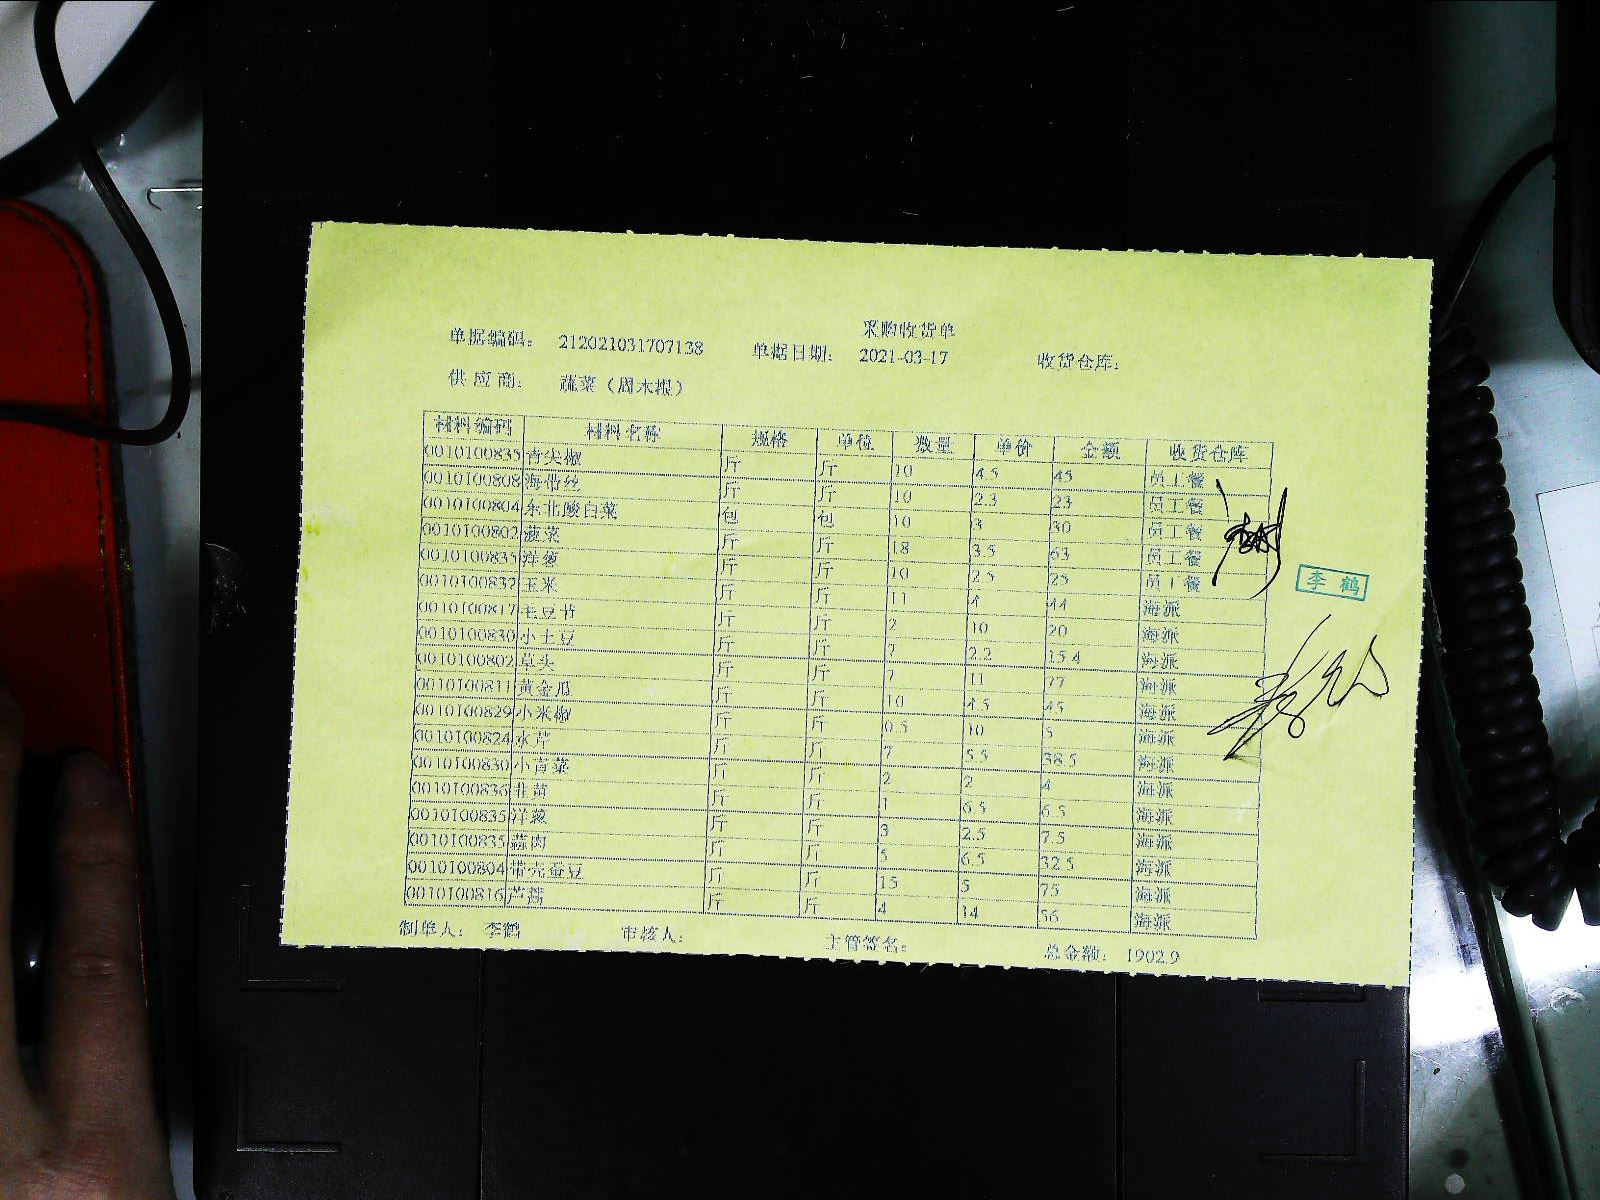 采购收货单
单据编码： 212021031707138 单据日期： 2021-03-17 收货仓库：
供 应 商： 蔬菜（周木根）
材料编码 材料名称 规格 单位 数量 单价 金额 收货仓库
0010100835 青尖椒 斤 斤 10 4.5 45 员工餐
0010100808 海带丝 斤 斤 10 2.3 23 员工餐
0010100804 东北酸白菜 包 包 10 3 30 员工餐
0010100802 菠菜 斤 斤 18 3.5 63 员工餐
0010100835 洋葱 斤 斤 10 2.5 25 员工餐
0010100832 玉米 斤 斤 11 4 44 海派
0010100817 毛豆节 斤 斤 2 10 20 海派
0010100830 小土豆 斤 斤 7 2.2 15.4 海派
0010100802 草头 斤 斤 7 11 77 海派
0010100811 黄金瓜 斤 斤 10 4.5 45 海派
0010100829 小米椒 斤 斤 0.5 10 5 海派
0010100824 水芹 斤 斤 7 5.5 38.5 海派
0010100830 小青菜 斤 斤 2 2 4 海派
0010100836 韭苗 斤 斤 1 6.5 6.5 海派
0010100835 洋葱 斤 斤 3 2.5 7.5 海派
0010100835 蒜肉 斤 斤 5 6.5 32.5 海派
0010100804 带壳蚕豆 斤 斤 15 5 75 海派
0010100816 芦蒿 斤 斤 4 14 56 海派
李 鹤
制单人： 李鹤 审核人： 主管签名： 总金额： 1902.9